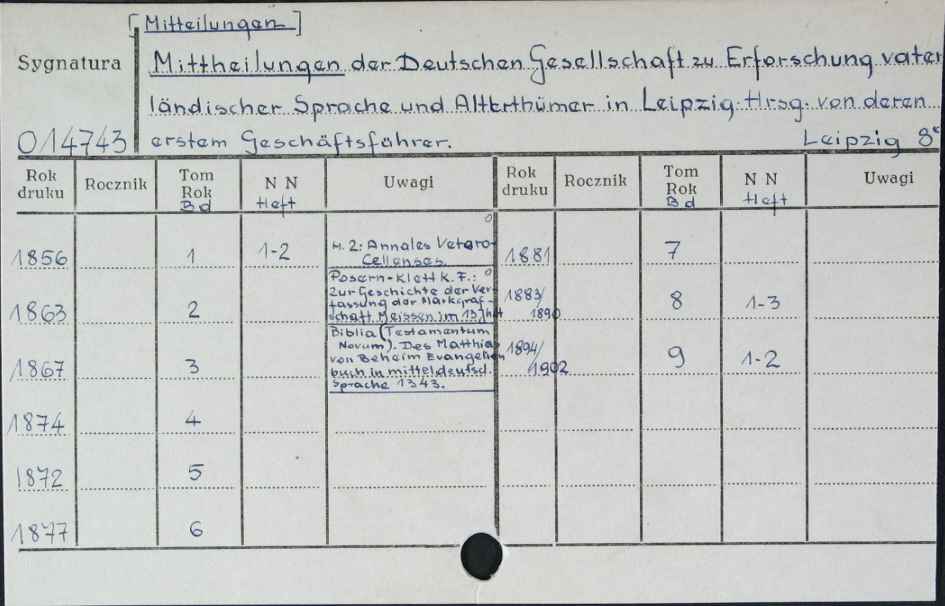 [Mitteilungen]
Sygnatura
Mittheilungen der Deutschen Gesellschaft zu Erforschung vater
ländischer Sprache und Alterthümer in Leipzig. Hrsg. von deren
014743 erstem Geschäftsführer. Leipzig 8°
Rok druku Rocznik Tom Rok Bd NN Heft Uwagi Rok druku Rocznik Tom Rok Bd NN Heft Uwagi
1856 1 1-2 H. 2: Annales Vetero-
Cellenses. 1881 7
1863 2 Posern-Klett K. F.:
Zur Geschichte der Ver-
fassung der Markgraf-
schaft Meissen im 13 Jht 1883/1890 8 1-3
1867 3 Biblia (Testamentum
Novum). Des Matthias
von Beheim Evangelien
buch in mitteldeutsch.
Sprache 1343. 1894/1902 9 1-2
1874 4
1872 5
1877 6